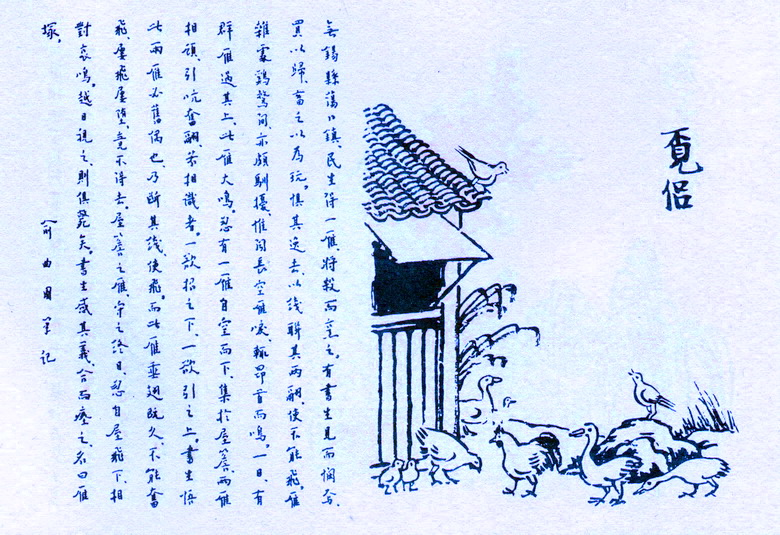 覔侣
無錫縣蕩口鎮、民生得一雁、將殺而烹之。有書生見而憫焉、
買以歸、畜之以為玩。懼其逸去、以綫聯其兩翮、使不能飛。雁
雜處鷄鶩間、亦頗馴擾、惟聞長空雁唳、輒昂首而鳴。一日、有
群雁過其上、此雁大鳴。忽有一雁自空而下、集於屋簷、兩雁
相顧、引吭奮翮、若相識者。一欲招之下、一欲引之上。書生悟
此兩雁必舊偶也、乃斷其綫、使飛。而此雁垂翅既久、不能奮
飛、屢飛屢墮、竟不得去。屋簷之雁、守之終日、忽自屋飛下、相
對哀鳴。越日視之、則俱斃矣。書生感其義、合而瘞之、名曰雁
塚。
俞曲園筆記